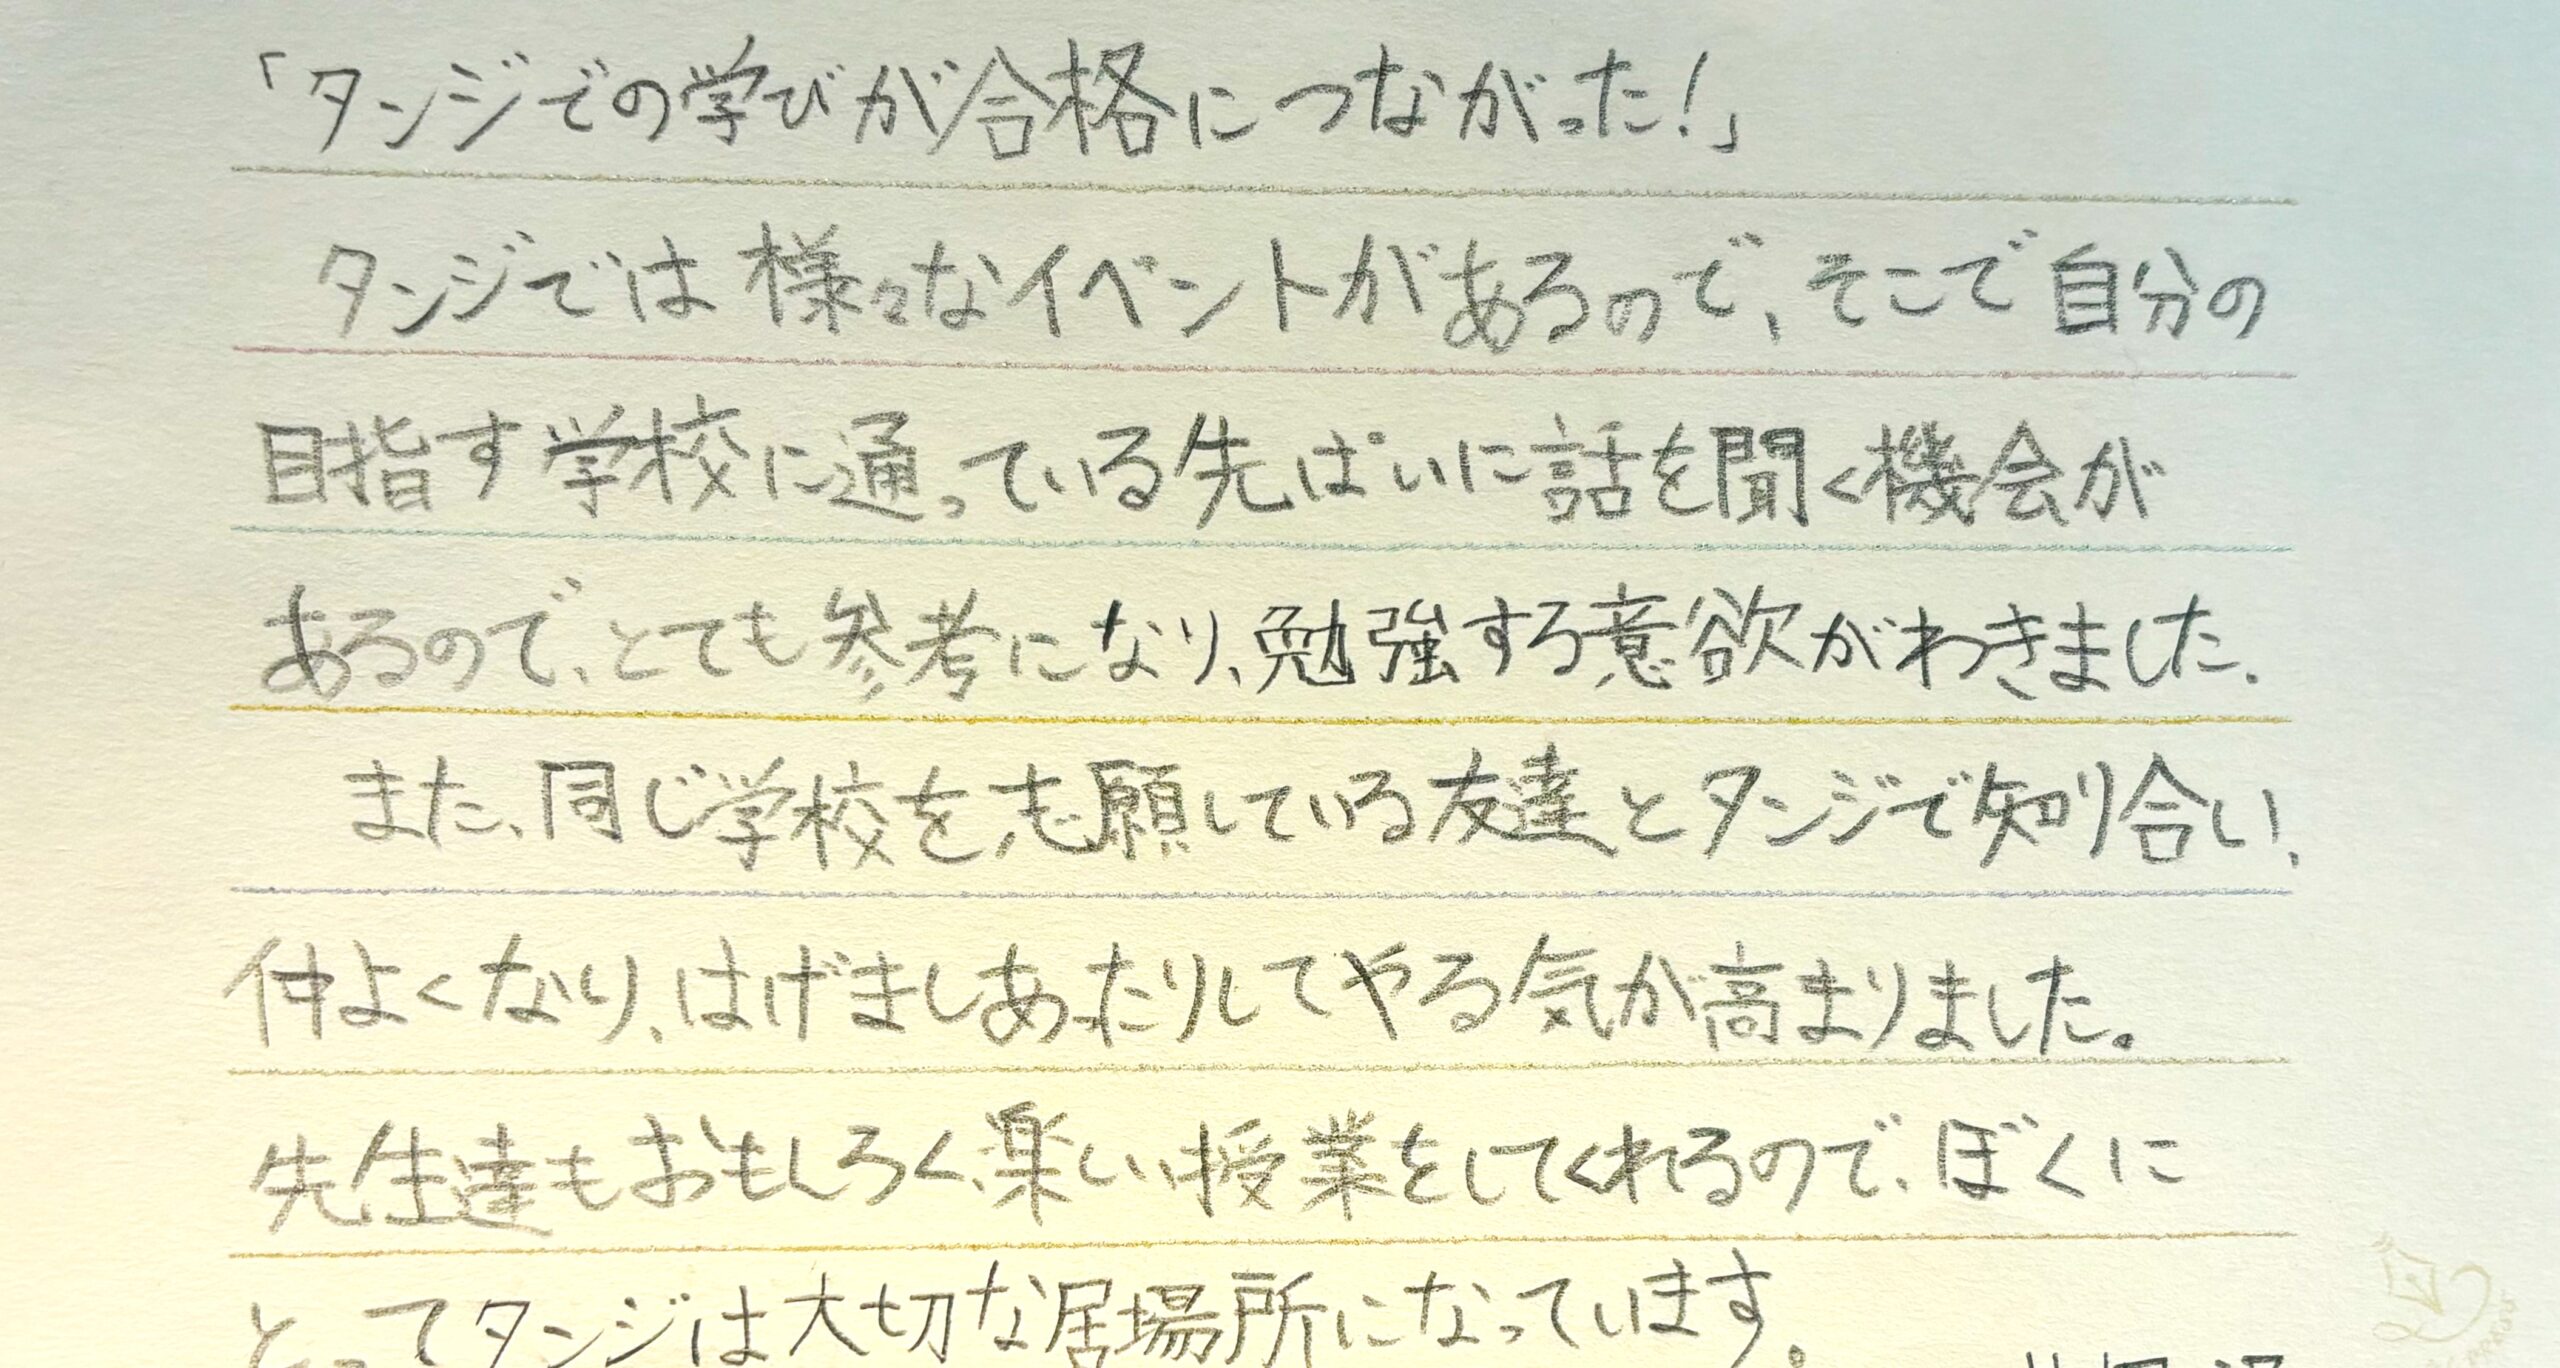 「タンジでの学びが合格につながった!」
タンジでは様々なイベントがあるので、そこで自分の
目指す学校に通っている先ぱいに話を聞く機会が
あるので、とても参考になり、勉強する意欲がわきました。
また、同じ学校を志願している友達とタンジで知り合い、
仲よくなり、はげましあったりしてやる気が高まりました。
先生達もおもしろく、楽しい授業をしてくれるので、ぼくに
とってタンジは大切な居場所になっています。